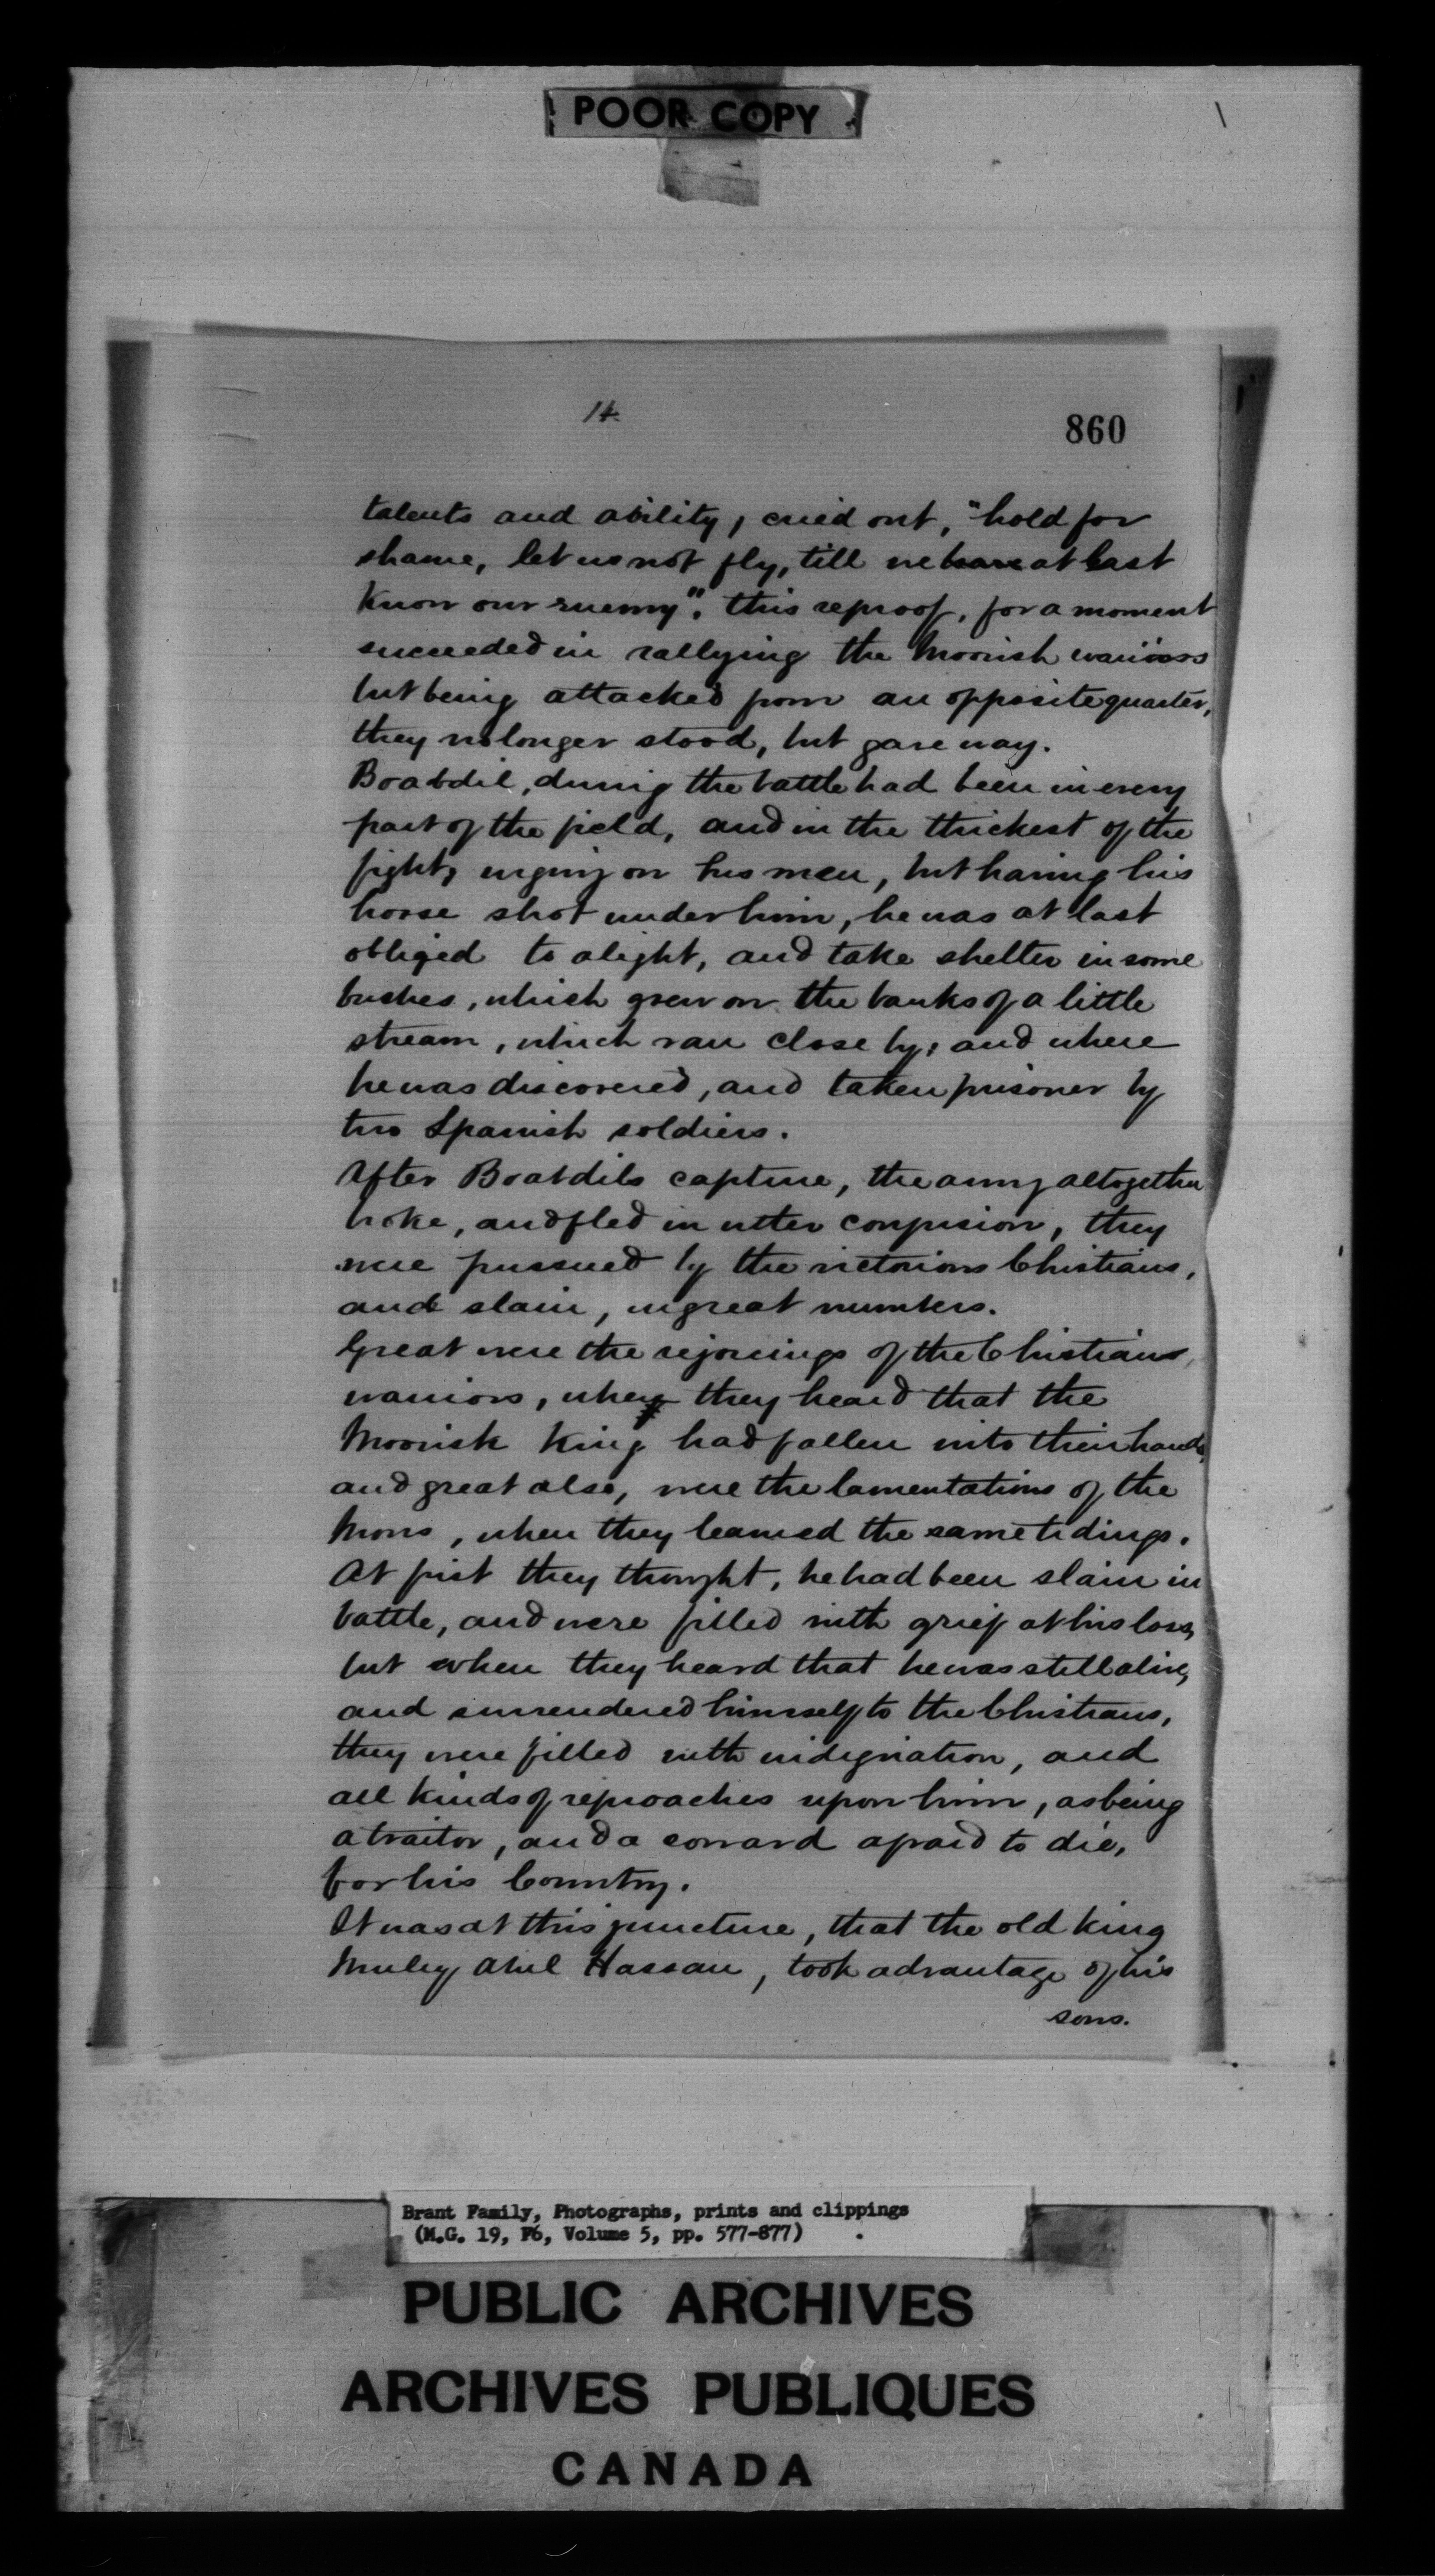 POOR COPY
14
860
talents and ability, cried out, "hold for
shame, let us not fly, till we have at least
know our enemy". this reproof, for a moment
succeeded in rallying the Moorish warriors
but being attacked from an opposite quarter,
they no longer stood, but gave way.
Boabdil, during the battle had been in every
part of the field, and in the thickest of the
fight, urging on his men, but having his
horse shot under him, he was at last
obliged to alight, and take shelter in some
bushes, which grew on the banks of a little
stream, which ran close by, and where
he was discovered, and taken prisoner by
two Spanish soldiers.
After Boabdils capture, the army altogether
broke, and fled in utter confusion, they
were pursued by the victorious Christians,
and slain, in great numbers.
Great were the rejoicings of the Christians,
warriors, when they heard that the
Moorish King had fallen into their hands,
and great also, were the lamentations of the
Moors, when they learned the same tidings.
At first they thought, he had been slain in
battle, and were filled with grief at his loss,
but when they heard that he was still alive,
and surrendered himself to the Christians,
they were filled with indignation, and
all kinds of reproaches upon him, as being
a traitor, and a coward afraid to die,
for his Country.
It was at this juncture, that the old king
Muley Abul Hassan, took advantage of his
sons.
Brant Family, Photographs, prints and clippings
(M.G. 19, F6, Volume 5, pp. 577-877)
PUBLIC ARCHIVES
ARCHIVES PUBLIQUES
CANADA